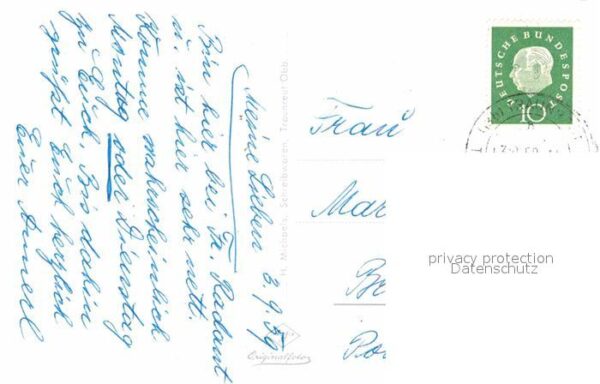 Meine Lieben 3.9.59
Bin hier bei Fr. Radant
u. ist hier sehr nett.
Komme wahrscheinlich
Montag oder Dienstag
zu Euch. Bis dahin
grüßt Euch herzlich
Eure Annerl
H. Michaels, Schreibwaren, Traunreut Obb.
Originalfoto
DEUTSCHE BUNDESPOST
10
Frau
Mar
Br
Po
privacy protection
Datenschutz